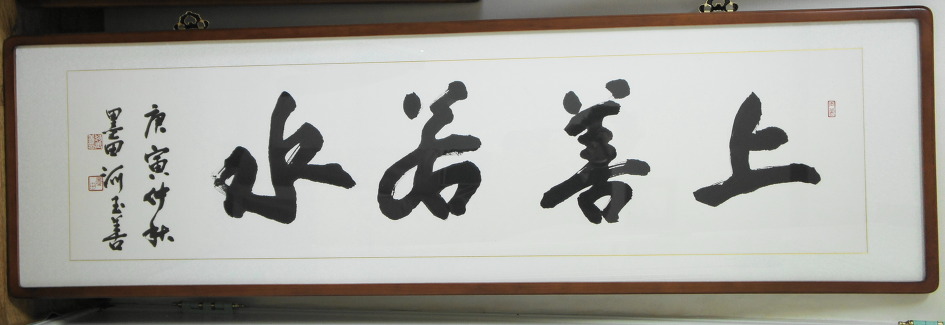 上善若水
庚寅仲秋
墨田 河玉善